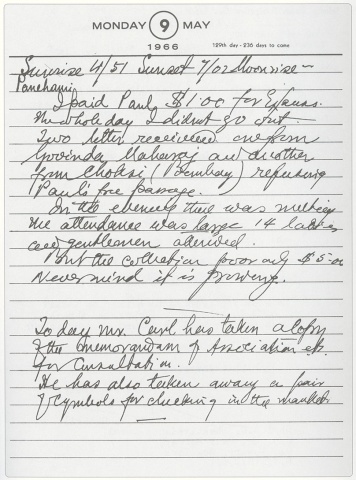 MONDAY 9 MAY
1966
129th day - 236 days to come
Sunrise 4/51 Sunset 7/02 Moonrise—
Panchami
I paid Paul $1.00 for
The whole day I did not go out.
Two letter received one from
Govinda Maharaj and another
from Choksi (Bombay) refusing
Paul's free passage.
In the evening there was meeting
the attendance was large 14 ladies
and gentlemen attended.
But the collection poor only $5.00
Never mind it is growing.
To day Mr. Carl has taken a copy
of the memorandam of Association etc.
for Consultation.
He has also taken away a pair
of Cymbols for checking in the market